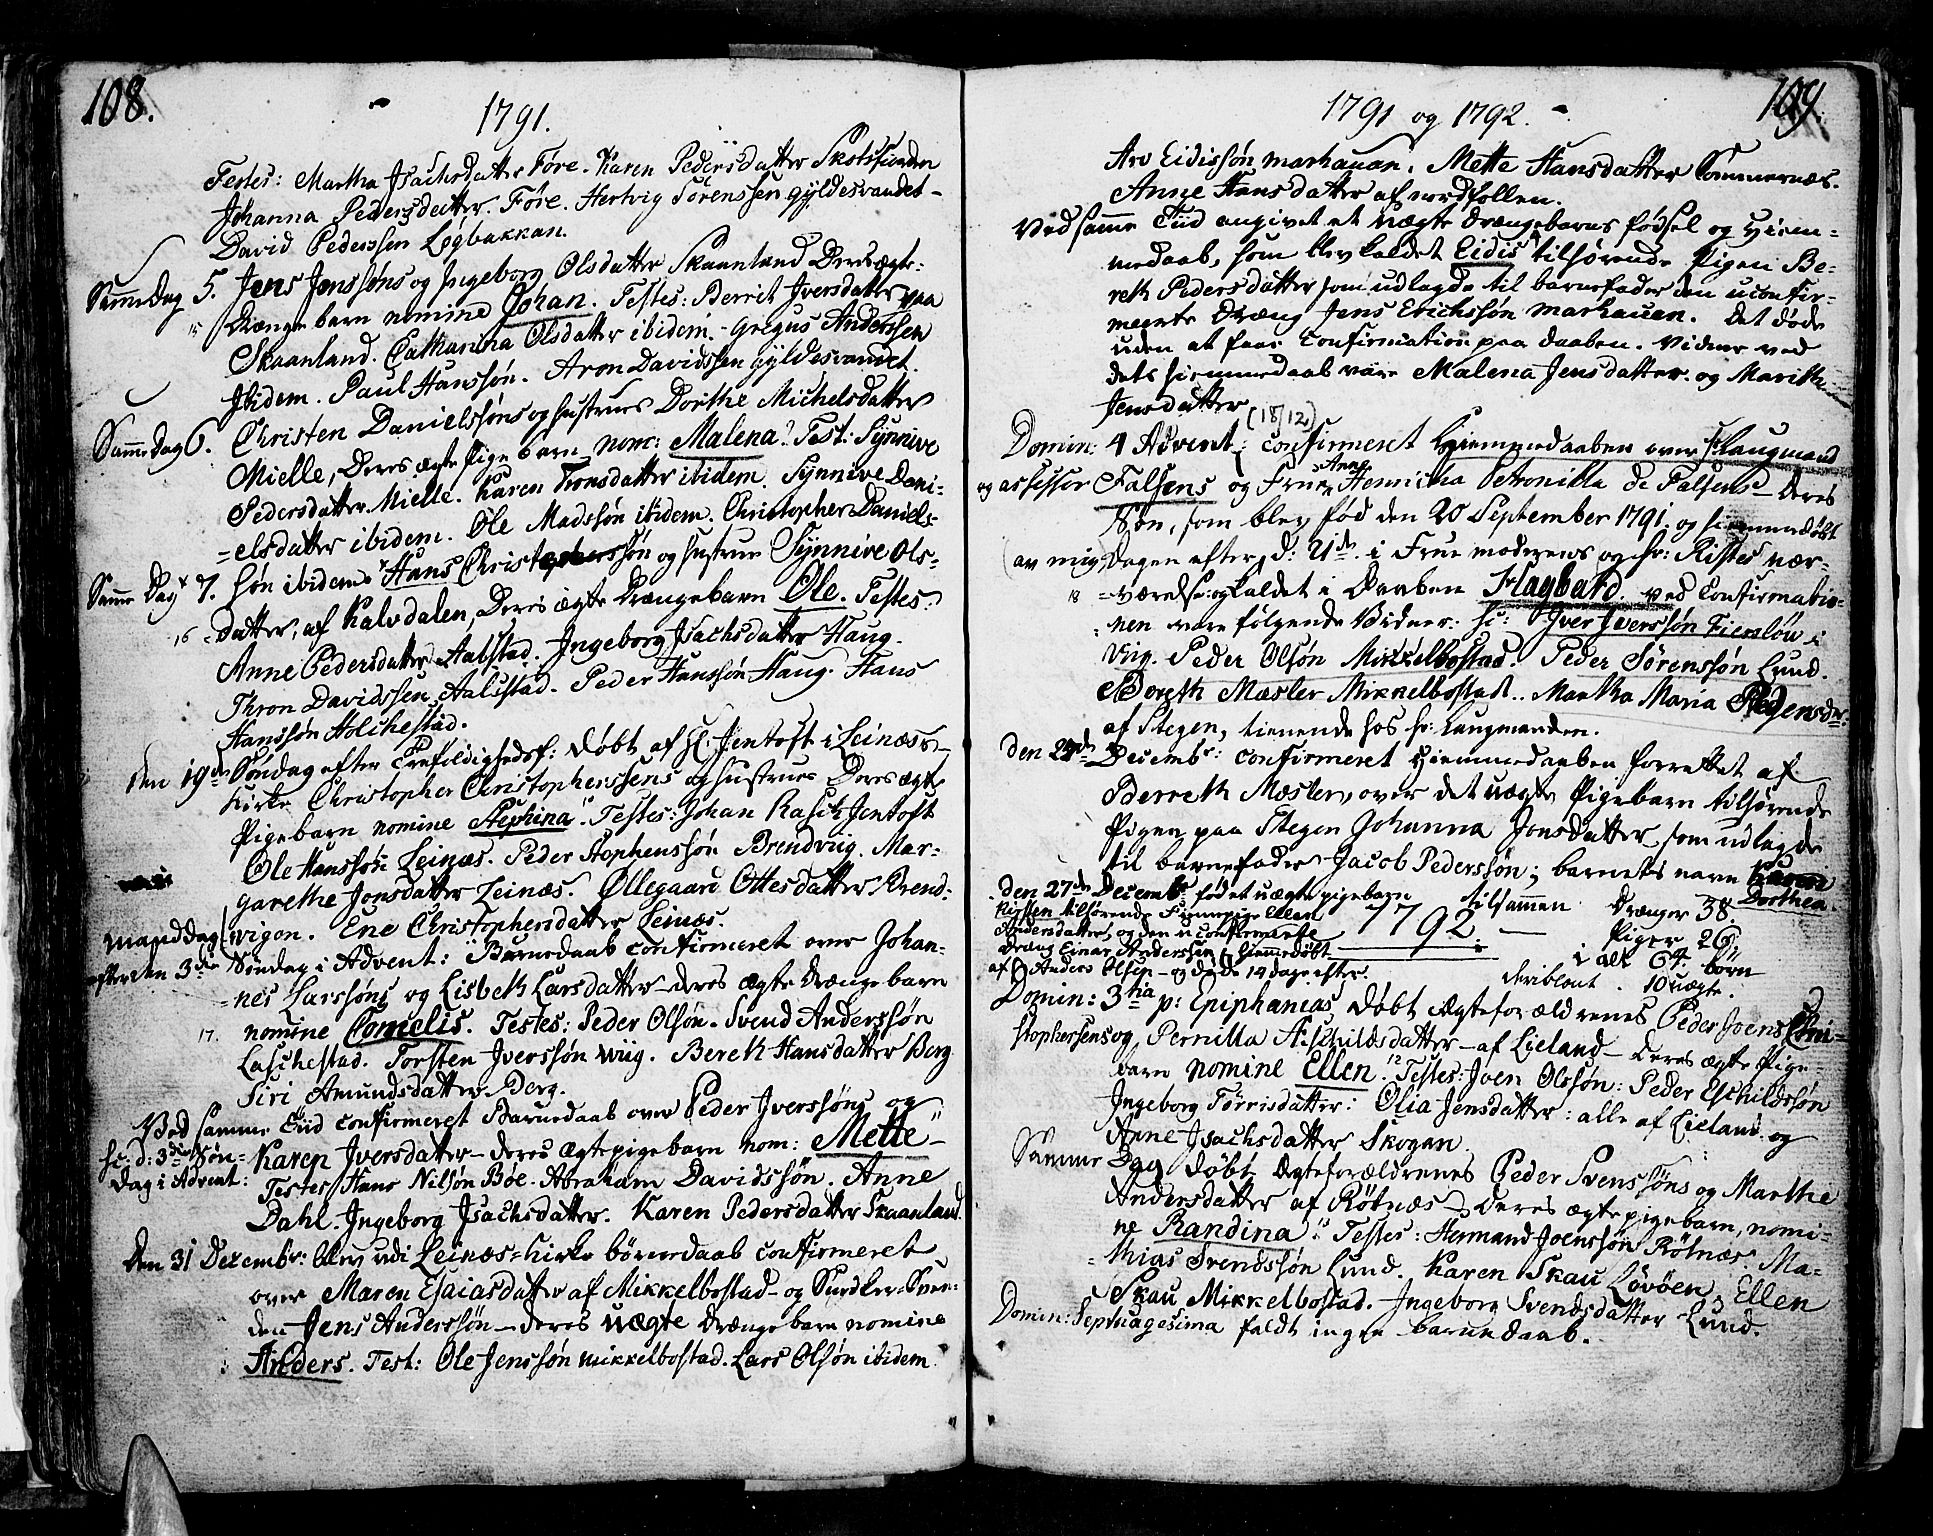 108.
1791.
Testes: Martha Jsachsdatter Føre. Karen Pedersdatter Skotsfiorden
Johanna Pedersdatter. Føre. Hertvig Sørenssen gyldesvandet -
David Pederssen Løgbakkan.
Samme dag 5. Jens Jonssøns og Jngeborg Olsdatter Skaanland Deres ægte-
15 Drænge barn nomine Johan. Testes: Berrit Jversdatter paa
Skaanland. Catharina Olsdatter ibidem. - Gregus Anderssen
Jbidem. Paul Hanssøn. Aron Davidssen gyldesvandet.
Samme Dag 6. Christen Danielssøns og hustrues Dorthe Michelsdatter
Mielle, Deres ægte Pige barn nom: Malena. Test: Synnive
Pedersdatter Mielle. Karen Tronsdatter ibidem. Synnive Dani-
=elsdatter ibidem. Ole Madssøn ibidem. Christopher Daniels-
Samme Dag 7. søn ibidem. Hans Christophersøn og hustrue Synnive Ols-
16 =datter, af Kalvdalen, Deres ægte Drængebarn Ole. Testes:
Anne Pedersdatter Aalstad. Jngeborg Jsachsdatter Haug.
Thron Davidssen Aalstad. Peder Hanssøn Haug. Hans
Hanssøn Holchestad.
den 19de Søndag efter Trefoldighedsf: døbt af H: Jentoft i Leinæs-
Kirke Christopher Christopherssens og hustrues Deres ægte
Pigebarn nomine Stephina. Testes: Johan Rasch Jentoft
Ole Hanssøn Leinæs. Peder Stophenssøn Brendviig. Mar-
garethe Jonsdatter Leinæs. Øllegaard Ottesdatter Brend-
wigen. Ene Christophersdatter Leinæs.
Manddag efter den 3die Søndag i Advent: Barnedaab confirmeret over Johan-
=nes Larssøns og Lisbeth Larsdatter - deres ægte Drænge barn
17. nomine Cornelis. Testes: Peder Olsøn. Svend Anderssøn
Laschestad. Torsten Jverssøn wiig. Bereth Hansdatter Berg
Siri Amundsdatter Berg.
Ved samme Tiid confirmeret Barnedaab over Peder Jverssøns og
sc: d: 3die Søn- Karen Jversdatter - deres ægte pigebarn nom: Mette -
dag i Advent: Testes Hans Nilsøn Bøe. Abraham Davidssøn. Anne
Dahl. Jngeborg Jsachsdatter. Karen Pedersdatter Skaanland.
Den 31 Decembr: blev udi Leinæs-Kirke børnedaab confirmeret
over Maren Esaiasdatter af Mikkelbostad - og Snedker-Sven-
den Jens Anderssøn - deres uægte Drænge barn nomine
Anders. Test: Ole Jenssøn Mikkelbostad. Lars Olsøn ibidem.
109.
1791 og 1792.
Arv Eidissøn Marhauan. Mette Hansdatter Sommernæs.
Anne Hansdatter af nordfollen.
Ved samme Tiid angivet et uægte drængebarns fødsel og Hiem-
medaab, som blev kaldet Eidis tilhørende Pigen Be-
reth Pedersdatter som udlagde til barnefader den uconfir-
meerte Dræng Jens Erichssøn Marhauen. Det døde
uden at faae Confirmation paa daaben. Vidner ved
dets hiemmedaab vare Malena Jensdatter. og Marithe
Jensdatter
(18/12)
Domin: 4 Advent: confirmeret Hiemmedaaben over Hr Laugmand
og assessor Falsens og Frue Anne Henricha Petronilla de Falsens - Deres
Søn, som blev fød den 20 September 1791. og hiemmedøbt
(av mig) Dagen efter, d: 21de i Frue moderens og Hr: Ristes nær-
18 =værelse og kaldet i Daaben Hagbard. ved Confirmatio-
nen vare følgende Vidner: sc: Jver Jverssøn Fiersløv i
Viig. Peder Olsøn Mikkelbostad. Peder Sørenssøn Lund.
Bereth Mæsler Mikkelbostad. Martha Maria Pedersdr.
af Stegen, tienende hos hr: Laugmanden.
den Decembr: confirmeret Hiemmedaaben forrettet af
Berreth Mæsler, over det uægte Pigebarn tilhørende
Pigen paa Stegen Johanna Jonsdatter, som udlagde
til barnefader Jacob Pederssøn; barnets navn
Dorthea.
den 27de Decembr fød et uægte pigebarn
Kirsten tilhørende Finnepige Ellen
Andersdatter, og den uconfirmerte
Dræng Einar Anderssen hiemmedøbt
af Anders Olsen - og døde 14 dage efter.
tilsammen Drænger 38.
Piger 26.
i alt 64 børn
10 uægte.
1792.
Domin: 3tia p: Epiphanias, døbt Ægteforældrenes Peder Joens Chri-
stophersens og Pernilla Æschildsdatter - af Lieland - Deres ægte Pige-
barn nomine Ellen. Testes: Joen Olssøn: Peder Eschildssøn
Jngeborg Tørrisdatter: Olia Jensdatter: alle af Lieland. og
Anne Jsachsdatter Skogan.
Samme Dag døbt Ægteforældrenes Peder Svenssøns og Marthe
Andersdatter af Røtnæs - deres ægte pigebarn, nomi-
ne Randina. Testes: Hermand Joenssøn Røtnæs. Ma-
=thias Svendssøn Lund. Karen Skau Løvøen. Ellen
Skau Mikkelbostad. Jngeborg Svendsdatter Lund.
Domin: Septuagesima faldt ingen barnedaab.